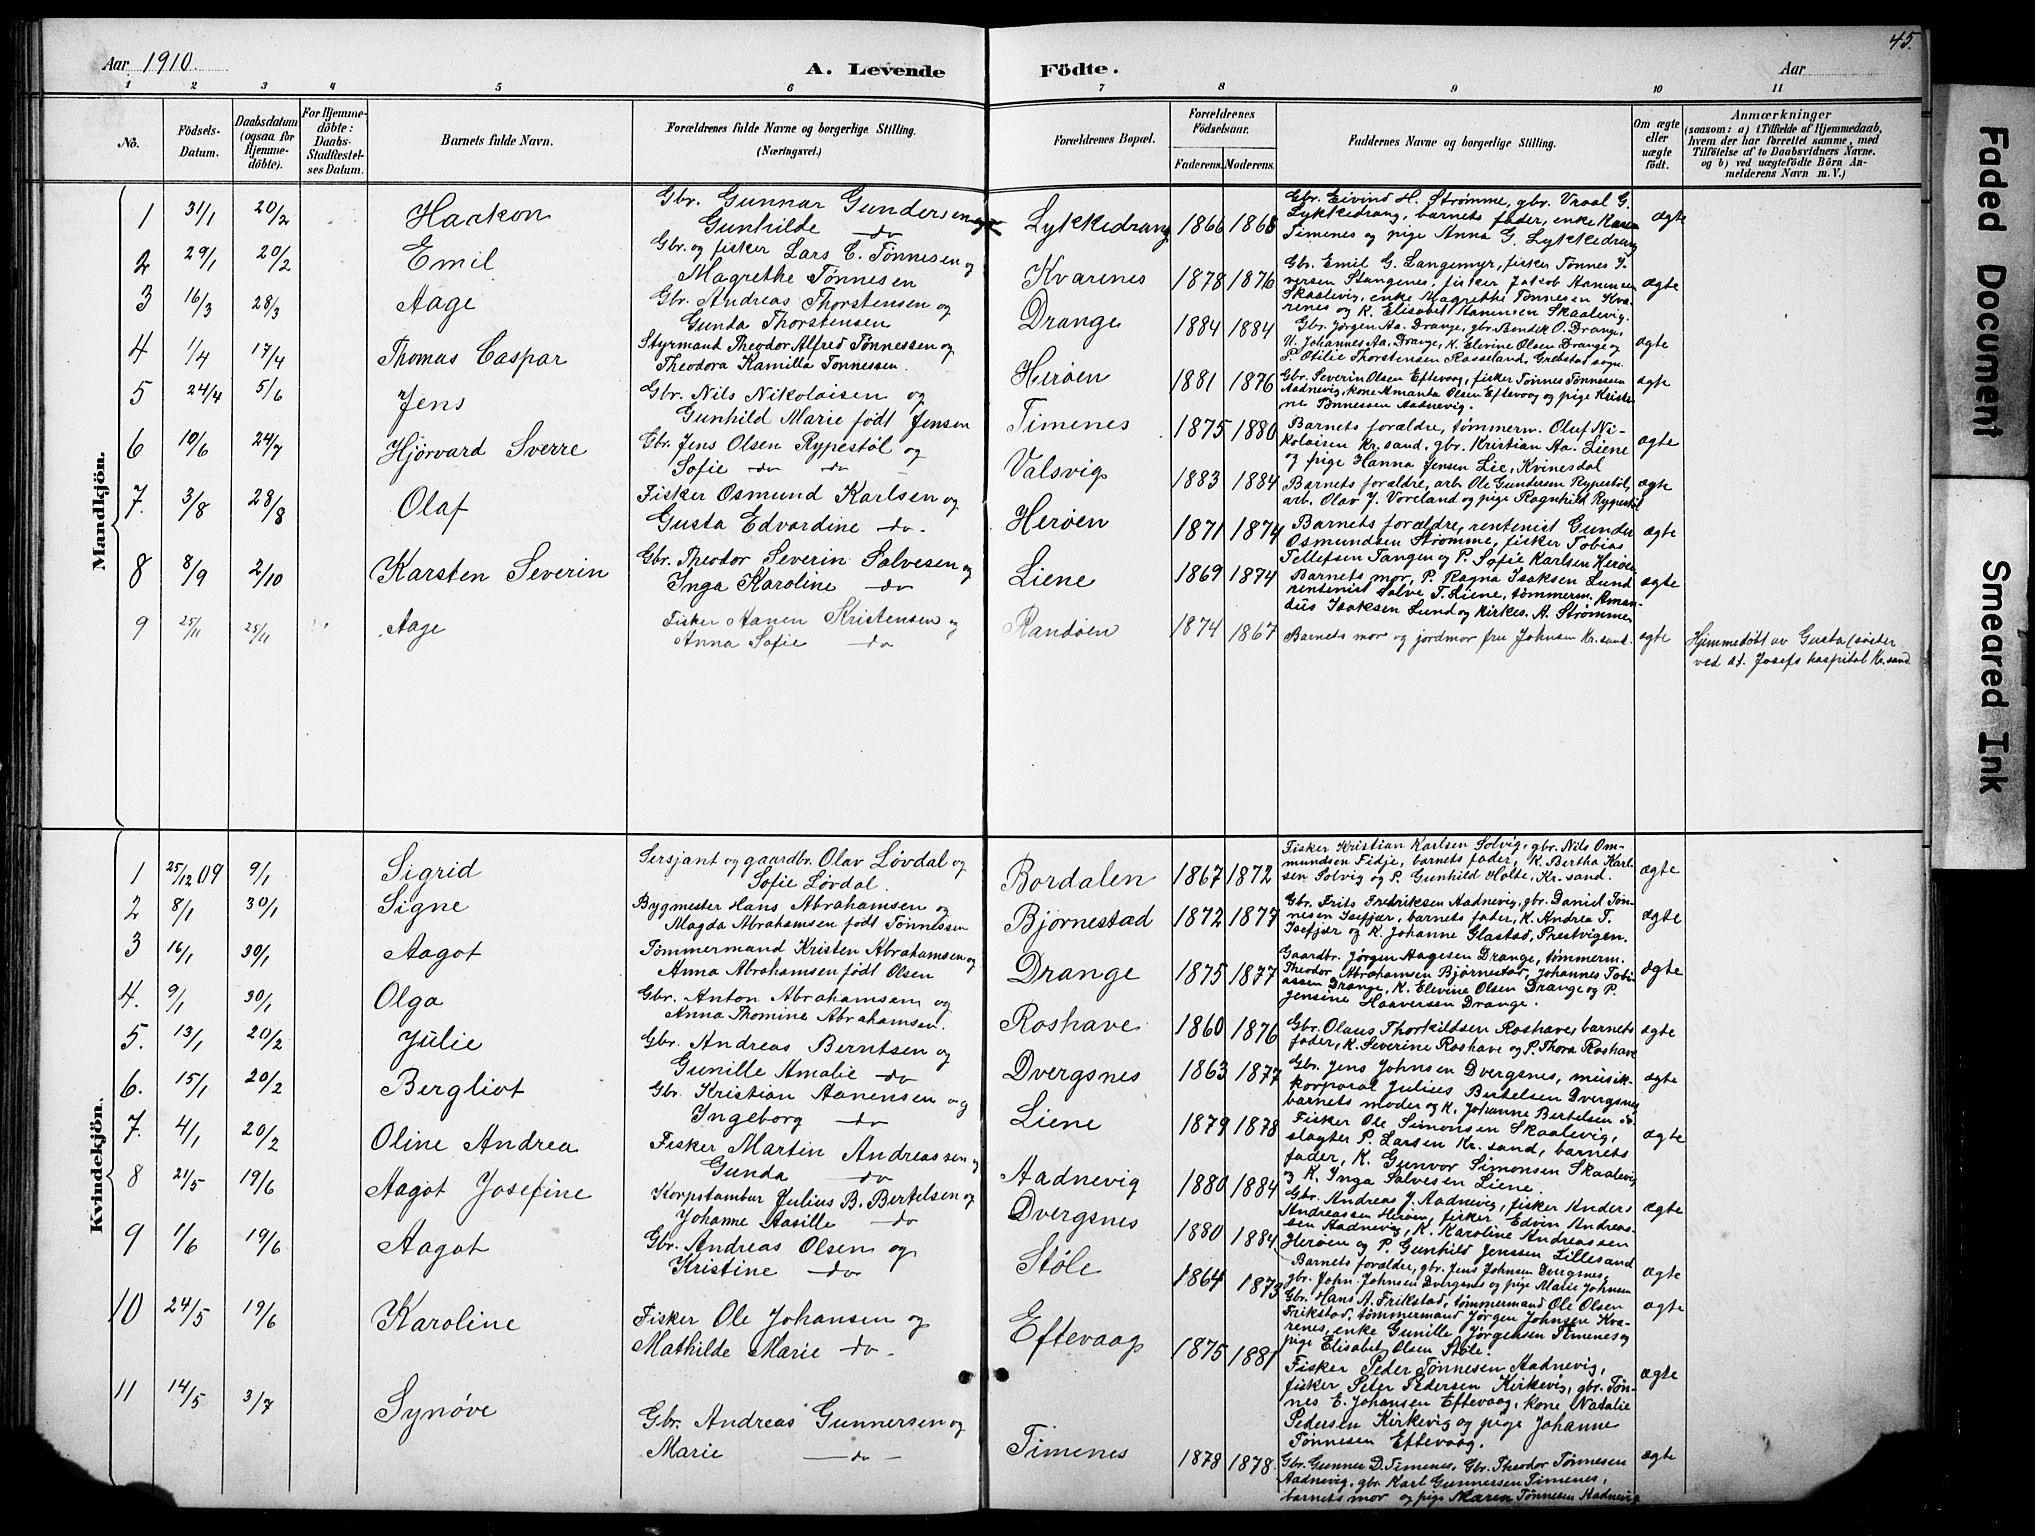 45.
Aar 1910.
A. Levende Födte.
Aar
1 2 3 4 5 6 7 8 9 10 11
No.
Födsels-Datum.
Daabsdatum (ogsaa for Hjemme-döbte).
For Hjemme-döbte: Daabs-Stadfæstel-ses Datum.
Barnets fulde Navn.
Forældrenes fulde Navne og borgerlige Stilling.
(Næringsvei.)
Forældrenes Bopæl.
Forældrenes Födselsaar.
Faderens. Moderens.
Faddernes Navne og borgerlige Stilling.
Om ægte eller uægte födt.
Anmærkninger
(saasom: a) i Tilfælde af Hjemmedaab, hvem der har forrettet samme, med Tilföielse af to Daabsvidners Navne, og b) ved uægtefödte Börn An-melderens Navn m. V.)
Mandkjön.
1 31/1 20/2 Haakon Gbr. Gunnar Gundersen og Gunhilde do Lykkedrang 1866 1868 Gbr. Eivind H. Strømme, gbr. Vraal G. Lykkedrang, barnets fader, enke Karen Timenes og pige Anna G. Lykkedrang ægte
2 29/1 20/2 Emil Gbr. og fisker Lars C. Tønnesen og Magrethe Tønnesen Kvarenes 1878 1876 Gbr. Emil G. Langemyr, fisker Tønnes Y-versen Stangenes, fisker Jakob Aanensen Skaalevig, enke Magrethe Tønnesen Kva-renes og K. Elisabet Aanensen Skaalevig. ægte
3 16/3 28/3 Aage Gbr. Andreas Thorstensen og Gunda Thorstensen Drange 1884 1884 Gbr. Jørgen Aa. Drange, gbr. Bendik O. Drange, U. Johannes Aa. Drange, K. Elevine Olsen Drange og P. Otilie Thorstensen Rasseland, Grebstad sogn. ægte
4 1/4 17/4 Thomas Caspar Styrmand Theodor Alfred Tønnessen og Theodora Kamilla Tønnessen. Herøen 1881 1876 Gbr. Severin Olsen Eftevaag, fisker Tønnes Tønnessen Aadnevig, kone Amanta Olsen Eftevaag og pige Kristi-ne Tønnessen Aadnevig. ægte
5 24/4 5/6 Jens Gbr. Nils Nikolaisen og Gunhild Marie født Jensen Timenes 1875 1880 Barnets foraldre, tømmerm. Oluf Ni-kolaisen Kr.sand, gbr. Kristian Aa. Liene og pige Hanna Jensen Lie, Kvinesdal ægte
6 10/6 24/7 Hjørvard Sverre Gbr. Jens Olsen Rypestøl og Sofie do do Valsvig 1883 1884 Barnets foraldre, arb. Ole Gundersen Rypestøl, arb. Olav J. Voreland og pige Ragnhild Rypestøl ægte
7. 3/8 28/8 Olaf Fisker Osmund Karlsen og Gusta Edvardine do. Herøen 1871 1874 Barnets forældre, rentenist Gunder Osmundsen Strømme, fisker Tobias Tellefsen Tangen og P. Sofie Karlsen Herøen ægte
8 8/9 2/10 Karsten Severin Gbr. Theodor Severin Salvesen og Inga Karoline do Liene 1869 1874 Barnets mor, P. Ragna Isaksen Lund rentenist Salve T. Liene, tømmerm. Aman-dus Isaksen Lund og kirkes. A. Strømme ægte
9 25/11 25/11 Aage Fisker Aanen Kristensen og Anna Sofie do Randøen 1874 1867 Barnets mor og jordmor fru Johnsen Kr.sand. ægte Hjemmedøbt av Gusta (søster ved st. Josefs hospital Kr.sand.
Kvindekjön.
1 25/12 09 9/1 Sigrid Sersjant og gaardbr. Olav Løvdal og Sofie Løvdal. Bordalen 1867 1872 Fisker Kristian Karlsen Solvig, gbr. Nils Om-mundsen Fidje, barnets fader, K. Bertha Karl-sen Solvig og P. Gunhild Holte, Kr.sand. ægte
2 8/1 30/1 Signe Bygmester Hans Abrahamsen og Magda Abrahamsen født Tønnessen Bjørnestad 1872 1877 Gbr. Frits Fredriksen Aadnevig, gbr. Daniel Tøn-nesen Isefjær, barnets fader, K. Andrea T. Isefjær og K. Johanne Glastad, Prestvigen. ægte
3 16/1 30/1 Aagot Tømmermand Kristen Abrahamsen og Anna Abrahamsen født Olsen Drange 1875 1877 Gaardbr. Jørgen Aagesen Drange, tømmerm. Theodor Abrahamsen Bjørnestad, Johannes Tobi-assen Drange, K. Elevine Olsen Drange og P. Jensine Haaversen Drange. ægte
4. 9/1 30/1 Olga Gbr. Anton Abrahamsen og Anna Thomine Abrahamsen. Roshave 1860 1876 Gbr. Olaus Thorkildsen Roshave, barnets fader, K. Severine Roshave og P. Thora Roshave ægte
5. 13/1 20/2 Julie Gbr. Andreas Berntsen og Gunille Amalie do Dvergsnes 1863 1877 Gbr. Jens Johnsen Dvergsnes, musik-korporal Julius Bertelsen Dvergsnes, barnets moder og K. Johanne Bertelsen ægte
6. 15/1 20/2 Bergliot Gbr. Kristian Aanensen og Ingeborg do Liene 1879 1878 Fisker Ole Simonsen Skaalevig, slagter P. Larsen Kr.sand, barnets fader, K. Gunvor Simonsen Skaalevig og K. Inga Salvesen Liene. ægte
7. 4/1 20/2 Oline Andrea Fisker Martin Andreassen og Gunda do Aadnevig 1880 1884 Gbr. Andreas J. Aadnevig, fisker Anders Andreassen Herøen, fisker Edvin Andreas-sen Aadnevig, K. Karoline Andreassen Herøen og P. Gunhild Jenssen Lillesand ægte
8 21/5 19/6 Aagot Josefine Korpstambur Julius B. Bertelsen og Johanne Aasille do Dvergsnes 1880 1884 Barnets foraldre, gbr. Jens Johnsen Dvergsnes, gbr. John Johnsen Dvergsnes og pige Marie Johnsen ægte
9 1/6 19/6 Aagot Gbr. Andreas Olsen og Kristine do Støle 1864 1873 Gbr. Hans A. Frikstad, tømmermand Ole Olsen Frikstad, tømmermand Jørgen Johnsen Kva-renes, enke Gunille Jørgensen Timenes og pige Elisabet Olsen Støle. ægte
10 24/5 19/6 Karoline Fisker Ole Johansen og Mathilde Marie do. Eftevaag 1875 1881 Fisker Peder Tønnesen Aadnevig, fisker Peter Pedersen Kirkevig, gbr. Tøn-nes E. Johansen Eftevaag, kone Natalie Pedersen Kirkevig og pige Johanne Tønnesen Eftevaag. ægte
11 14/5 3/7 Synøve Gbr. Andreas Gunnersen og Marie do Timenes 1878 1878. Gbr. Gunner D. Timenes, Gbr. Theodor Tønnesen Aadnevig, gbr. Karl Gunnersen Timenes, barnets mor og pige Maren Tønnesen Aadnevig ægte
Faded Document
Smeared Ink